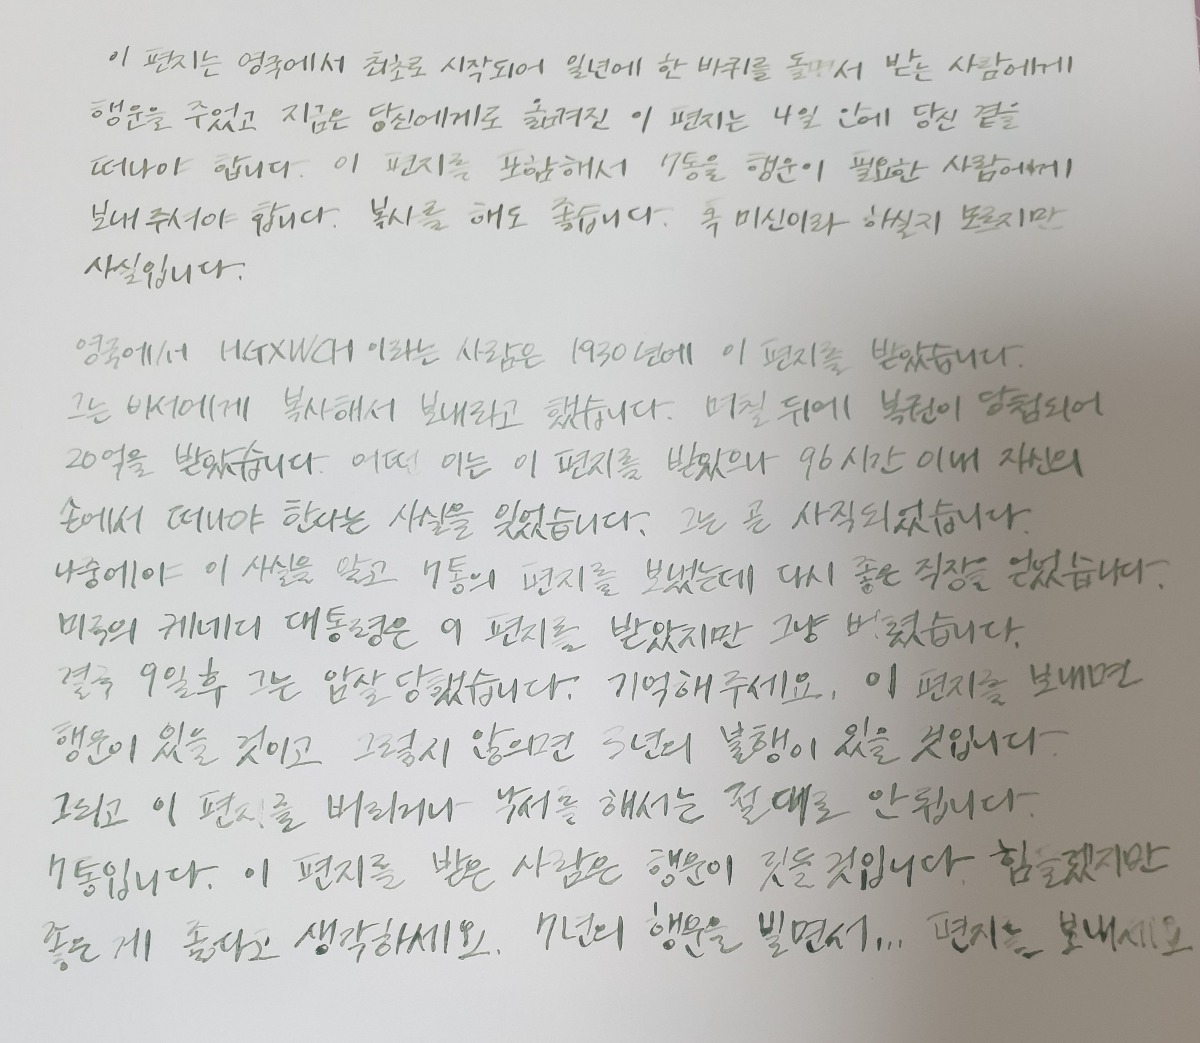 이 편지는 영국에서 최초로 시작되어 일년에 한 바퀴를 돌면서 받는 사람에게
행운을 주었고 지금은 당신에게로 옮겨진 이 편지는 4일 안에 당신 곁을
떠나야 합니다. 이 편지를 포함해서 7통을 행운이 필요한 사람에게
보내 주셔야 합니다. 복사를 해도 좋습니다. 혹 미신이라 하실지 모르지만
사실입니다.
영국에서 HGXWCH이라는 사람은 1930년에 이 편지를 받았습니다.
그는 비서에게 복사해서 보내라고 했습니다. 며칠 뒤에 복권이 당첨되어
20억을 받았습니다. 어떤 이는 이 편지를 받았으나 96시간 이내 자신의
손에서 떠나야 한다는 사실을 잊었습니다. 그는 곧 사직되었습니다.
나중에야 이 사실을 알고 7통의 편지를 보냈는데 다시 좋은 직장을 얻었습니다.
미국의 케네디 대통령은 이 편지를 받았지만 그냥 버렸습니다.
결국 9일후 그는 암살당했습니다. 기억해주세요. 이 편지를 보내면
행운이 있을 것이고 그렇지 않으면 3년의 불행이 있을 것입니다.
그리고 이 편지를 버리거나 낙서를 해서는 절대로 안됩니다.
7통입니다. 이 편지를 받은 사람은 행운이 깃들것입니다. 힘들겠지만
좋은게 좋다고 생각하세요. 7년의 행운을 빌면서... 편지를 보내세요